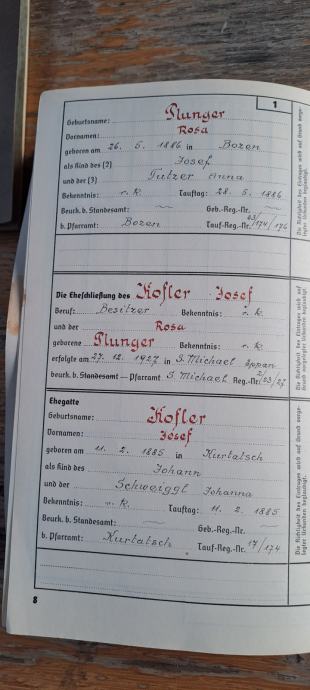 1
Geburtsname: Plunger
Vornamen: Rosa
geboren am 26. 5. 1886 in Bozen
als Kind des (2) Josef
und der (3) Tutzer Anna
Bekenntnis: r. k. Tauftag: 28. 5. 1886
Beurk. b. Standesamt: Geb.-Reg.-Nr.
b. Pfarramt: Bozen Tauf-Reg.-Nr. 23/174/176
Die Eheschließung des Kofler Josef
Beruf: Besitzer Bekenntnis: r. k.
und der Rosa
geborene Plunger Bekenntnis: r. k.
erfolgte am 27. 12. 1927 in S. Michael Eppan
beurk. b. Standesamt — Pfarramt S. Michael Reg.-Nr. 2/23/27
Ehegatte
Geburtsname: Kofler
Vornamen: Josef
geboren am 11. 2. 1885 in Kurtatsch
als Kind des Johann
und der Schweiggl Johanna
Bekenntnis: r. k. Tauftag: 11. 2. 1885
Beurk. b. Standesamt: Geb.-Reg.-Nr.
b. Pfarramt: Kurtatsch Tauf-Reg.-Nr. 17/174
8
Die Richtigkeit des Eintrages wird auf Grund vorge-
legter Urkunden beglaubigt.
Die Richtigkeit des Eintrages wird auf
Grund vorgelegter Urkunden beglaubigt.
Die Richtigkeit des Eintrages wird auf Grund vorge-
legter Urkunden beglaubigt.